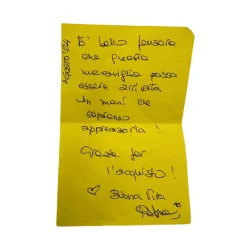 Agosto '24
E' bello pensare
che questa
meraviglia possa
essere arrivata
in mani che
sapranno
apprezzarla!
Grazie per
l'acquisto!
♡ Buona Vita